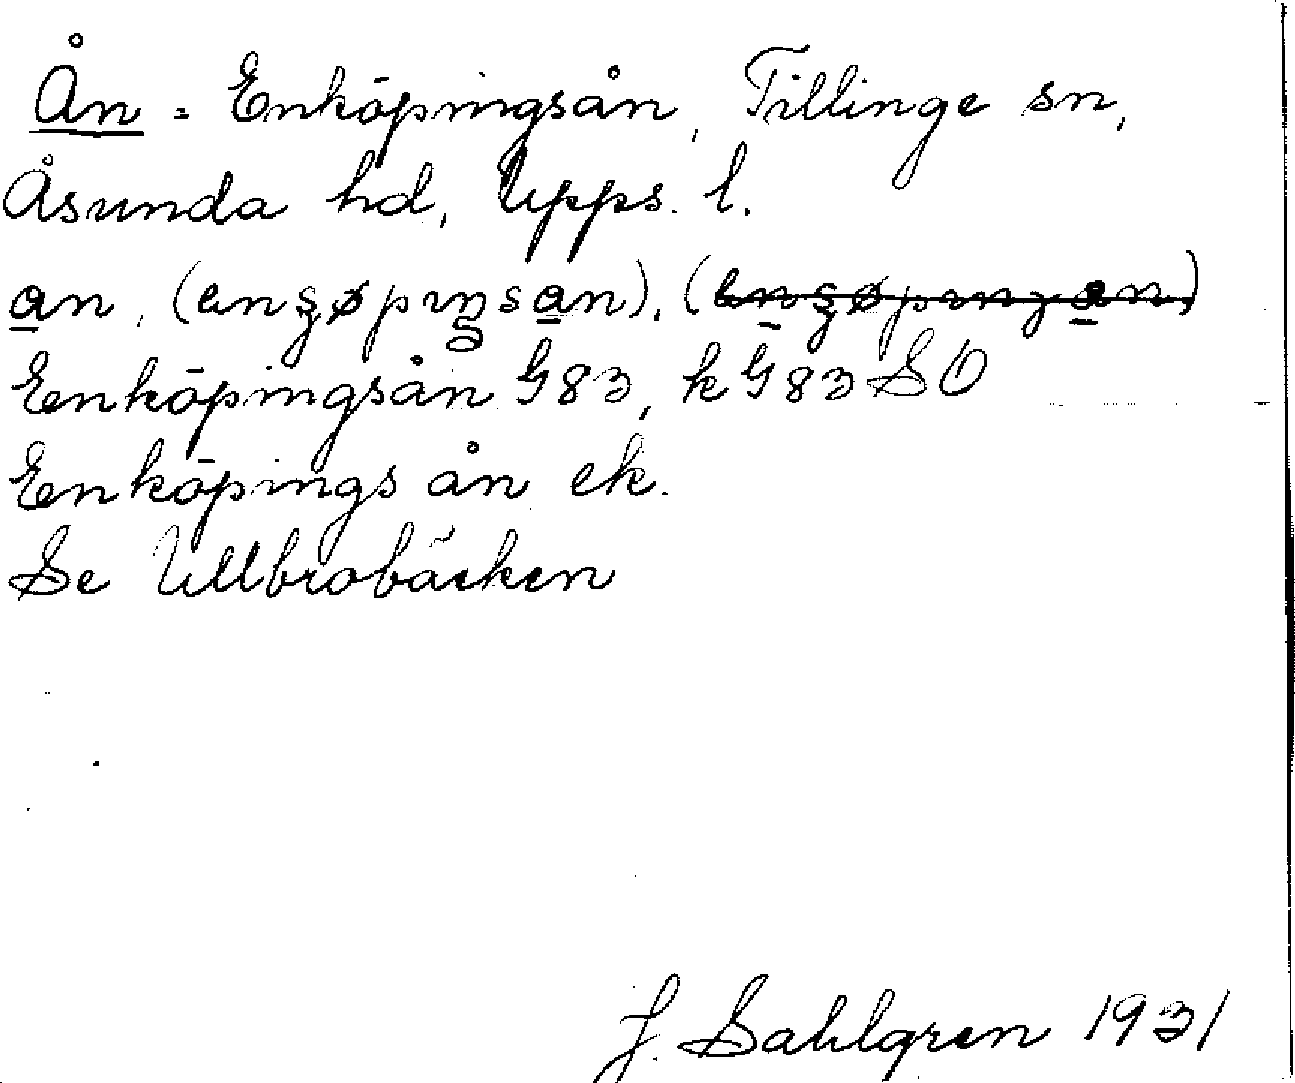 Ån = Enköpingsån, Tillinge sn,
Åsunda hd, Upps. l.
an, (enʒøpıŋsan),
Enköpingsån G83, k G83 SO
Enköpings ån ek.
Se Ullbrobäcken
J. Sahlgren 1931